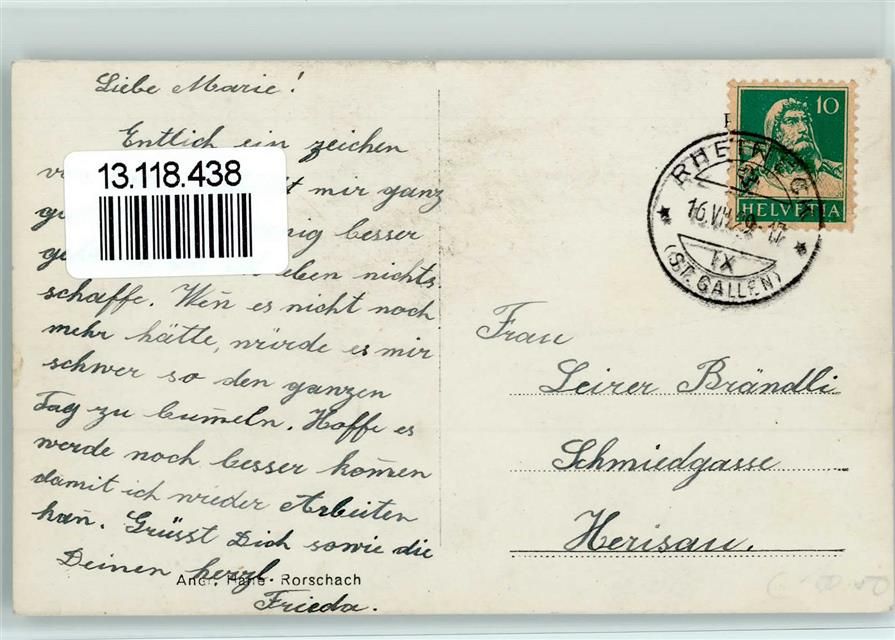 Liebe Marie!
Entlich ein zeichen
mir ganz
besser
nichts
schaffe. Wen̄ es nicht noch
mehr hätte, würde es mir
schwer so den ganzen
Tag zu bum̄eln. Hoffe es
werde noch besser kom̄en
damit ich wieder Arbeiten
kan̄. Grüsst Dich sowie die
Deinen herzl.
Frieda.
Rorschach
13.118.438
10
HELVETIA
RHEINECK
(ST. GALLEN)
IX
Frau
Leirer Brändli
Schmiedgasse
Herisau.